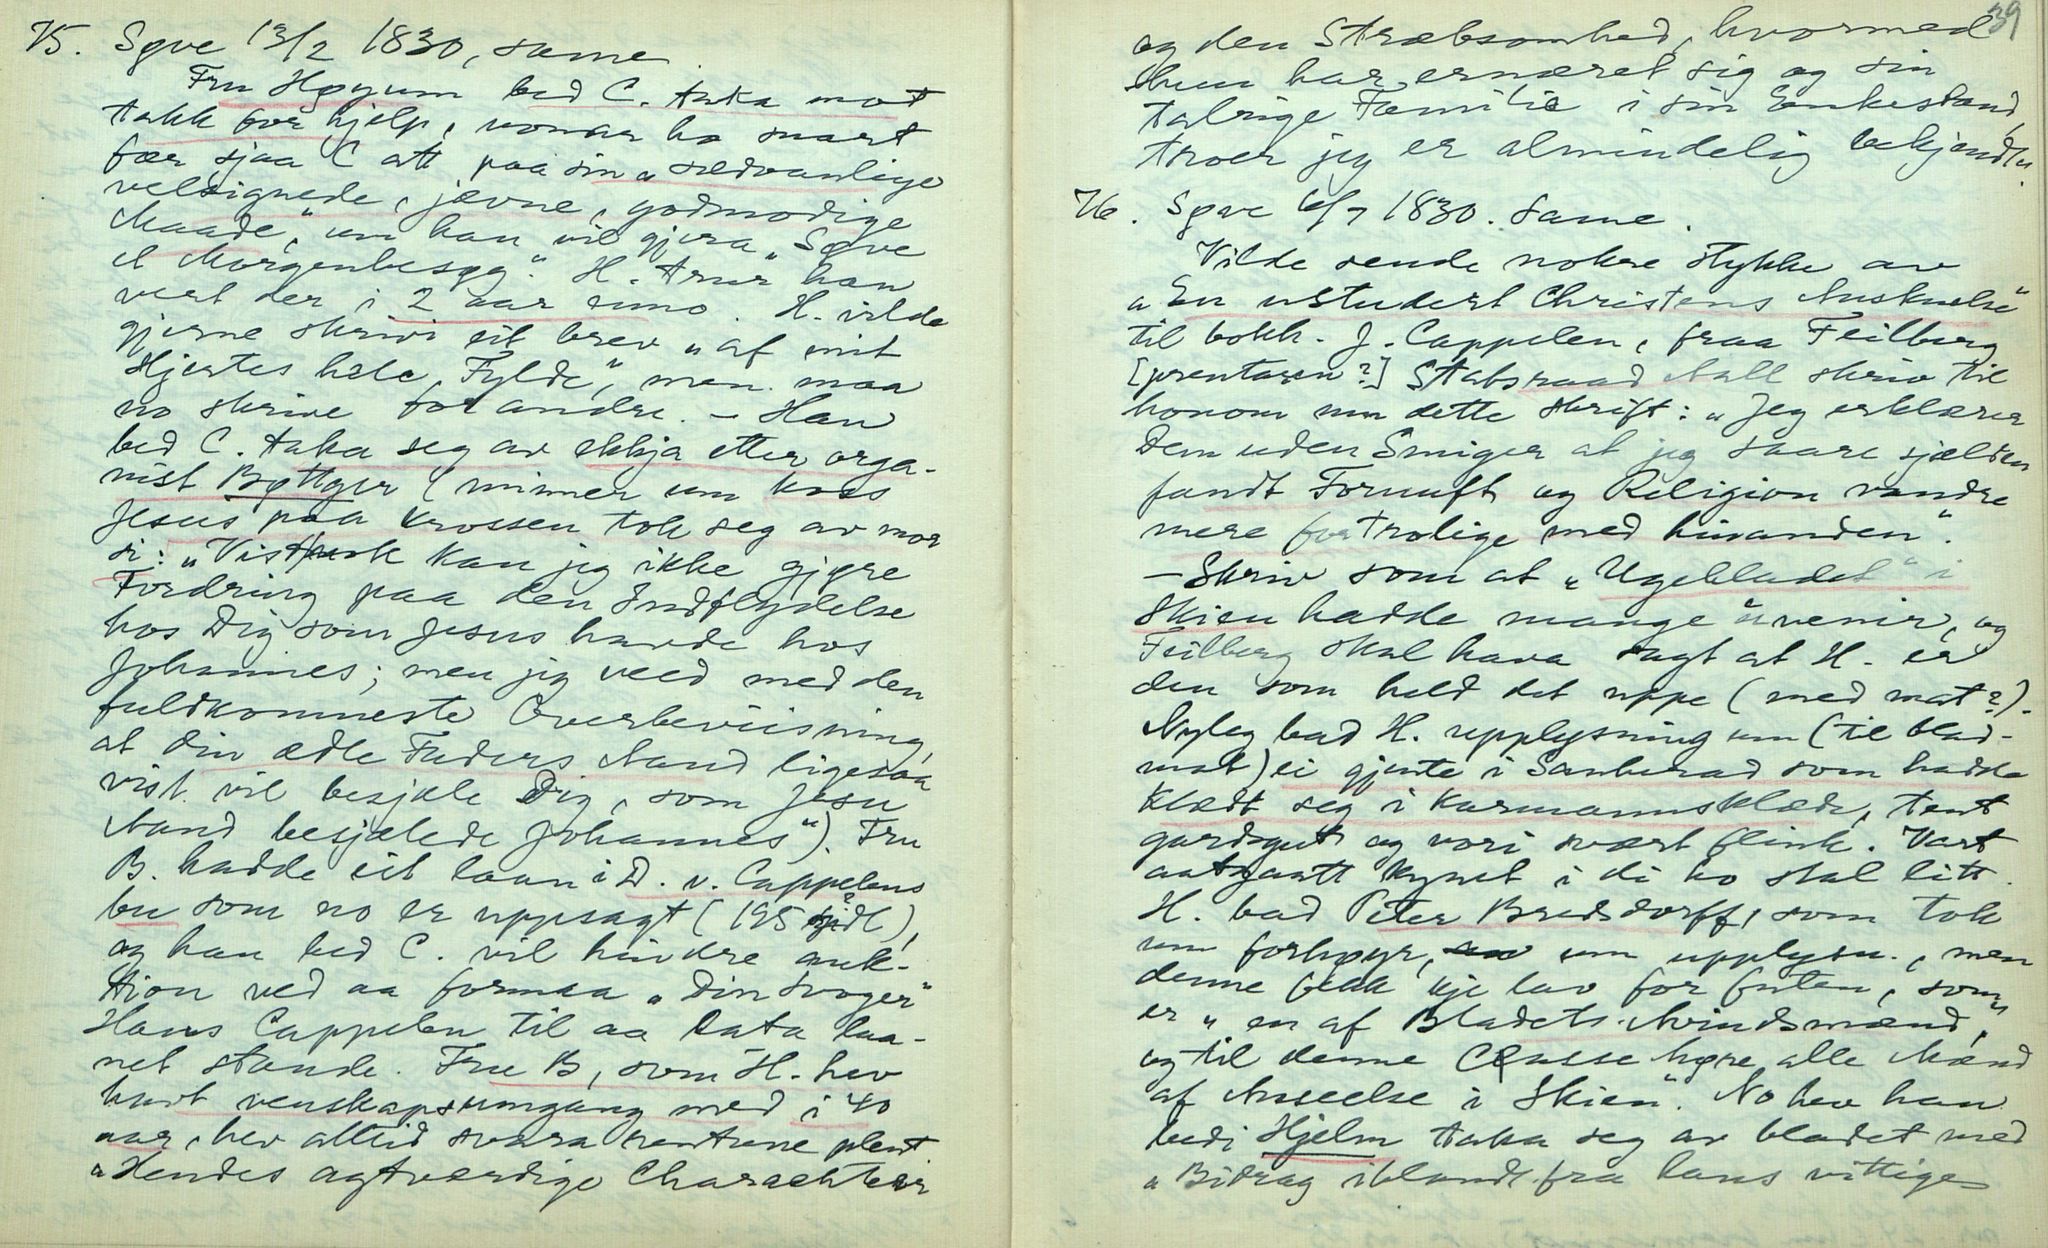 75. Søve 13/2 1830, same
Fru Høyum bed C. taka mot
takk for hjelp, vonar ho snart
fær sjaa C att paa sin „sedvanlige
velsignede, jævne, godmodige
Maade", um han vil gjera „Søve
et Morgenbesøg". H. trur han
vert der i 2 aar enno. H. vilde
gjerne skrivi eit brev „af mit
Hjertes hele Fylde", men maa
no skrive for andre. – Han
bed C. taka seg av ekkja etter orga-
nist Bøttger (minner um koss
Jesus paa krossen tok seg av mor
si: „Vist kan jeg ikke gjøre
Fordring paa den Indflydelse
hos Dig som Jesus havde hos
Johannes; men jeg veed med den
fuldkomneste Overbeviisning,
at din ædle Faders Aand ligesaa
vist vil besjæle Dig, som Jesu
Aand besjælede Johannes"). Fru
B. hadde eit laan i D. v. Cappelens
bu som no er uppsagt (195 spdl),
og han bed C. vil hindre auk-
tion ved aa formaa „Din Svoger"
Hans Cappelen til aa lata laa-
net stande. Fru B, som H. hev
havt venskapsumgang med i 40
aar, hev alltid svara rentune plent.
„Hendes agtværdige Charachteer
39
og den Stræbsomhed, hvormed
hun har ernæret sig og sin
talrige Familie i sin Enkestand,
troer jeg er almindelig bekjendt".
76. Søve 6/7 1830. Same.
Vilde sende nokre stykke av
„En ustudert Christens Anskuelse"
til bokh. J. Cappelen, fraa Feilberg
[prentaren?] Statsraad Aall skriv til
honom um dette skrift: „Jeg erklærer
Dem uden Smiger at jeg saare sjælden
fandt Fornuft og Religion vandre
mere fortrolige med hinanden".
– Skriv som at „Ugebladet" i
Skien hadde mange uvenir, og
Feilberg skal hava sagt at H. er
den som held det uppe (med mat?).
Nyleg bad H. upplysning um (til blad-
mat) ei gjente i Sauherad som hadde
klædt seg i karmannsklæde, tent
gardsgut og vori svært flink. Vart
aatgaatt kynet i di ho stal litt.
H. bad Peter Bredsdorff, som tok
um forhøyr, um upplysn., men
denne fekk kje lov for futen, som
er „en af Bladets Avindsmænd,
og til denne Classe høre alle Mænd
af Anseelse i Skien". No hev han
bedi Hjelm taka seg av bladet med
„Bidrag iblandt fra hans vittige